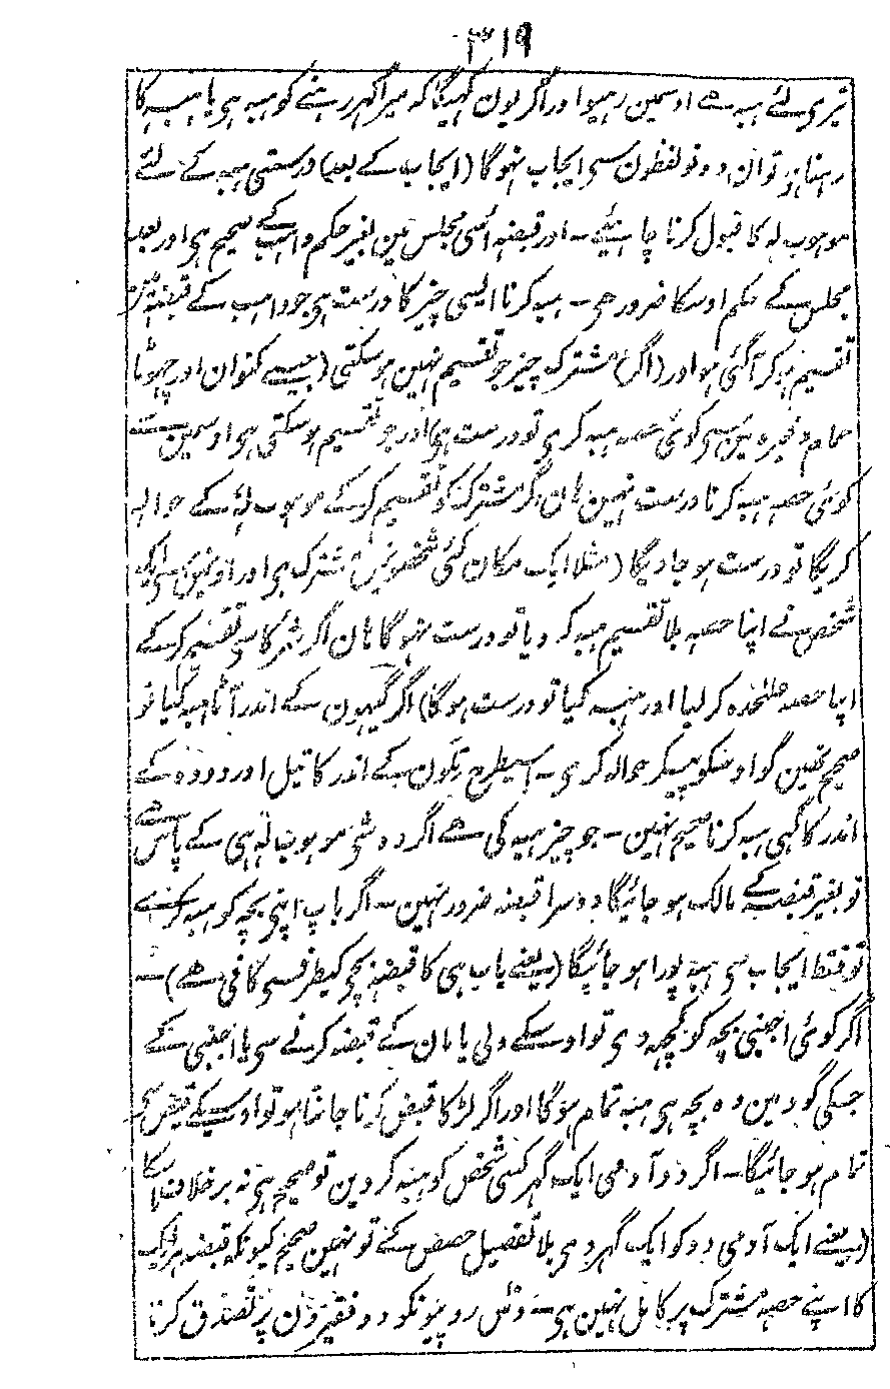 ۳۱۹
تیری لئے ہبہ ہے اوسمین رہیو اور اگر یون کہیگا کہ میرا گہر رہنے کو ہبہ ہی یا ہبہ کا
رہنا ہی تو ان دونو لفظون سی ایجاب نہوگا (ایجاب کے بعد) درستی ہبہ کے لئے
موہوب لہ کا قبول کرنا چاہئیے۔ اور قبضہ اسی مجلس مین بغیر حکم واہب کے صحیح ہی اور بعد
مجلس کے حکم اوسکا ضرور ہی۔ ہبہ کرنا ایسی چیز کا درست ہی جو واہب کے قبضہ مین
تقسیم ہو کر آگئی ہو اور (اگر) مشترک چیز جو تقسیم نہین ہو سکتی (جیسے کنوان اور چہوٹا
حمام وغیرہ مین سی کوئی حصہ ہبہ کری تو درست ہی اور جو تقسیم ہو سکتی ہی اوسمین سے
کوئی حصہ ہبہ کرنا درست نہین ہان اگر مشترک کو تقسیم کر کے موہوب لہ کے حوالہ
کریگا تو درست ہو جاویگا (مثلا ایک مکان کئی شخصونمین مشترک ہی اور اونمین سی ایک
شخص نے اپنا حصہ بلا تقسیم ہبہ کر دیا تو درست نہوگا ہان اگر شرکا سی تقسیم کر کے
اپنا حصہ علٰحدہ کر لیا اور ہبہ کیا تو درست ہوگا) اگر گیہون کے اندر آٹا ہبہ کیا تو
صحیح نہین گو اوسکو پیسکر حوالہ کری۔ اسیطرح تلون کے اندر کا تیل اور دودہ کے
اندر کا گہی ہبہ کرنا صحیح نہین۔ جو چیز ہبہ کی ہے اگر وہ شی موہوب لہ ہی کے پاس ہے
تو بغیر قبضہ کے مالک ہو جائیگا دوسرا قبضہ ضرور نہین۔ اگر باپ اپنی بچہ کو ہبہ کرے
تو فقط ایجاب سی ہبہ پورا ہو جائیگا (یعنے باپ ہی کا قبضہ بچی کیطرفسی کافی ہے)۔
اگر کوئی اجنبی بچہ کو کچہہ دی تو اوسکے ولی یا مان کے قبضہ کرنے سی یا اجنبی کے
جسکی گود مین وہ بچہ ہی ہبہ تمام ہوگا اور اگر لڑکا قبض کرنا جانتا ہو تو اوسیکے قبض سی
تمام ہو جائیگا۔ اگر دو آدمی ایک گہر کسی شخص کو ہبہ کر دین تو صحیح ہی نہ برخلاف اسکا
(یعنے ایک آدمی دو کو ایک گہر دی بلا تفصیل حصص کے تو نہین صحیح کیونکہ قبضہ ہر ایک
کا اپنے حصہ مشترک پر کامل نہین ہی۔ دس روپیونکو دو فقیرون پر تصدق کرنا